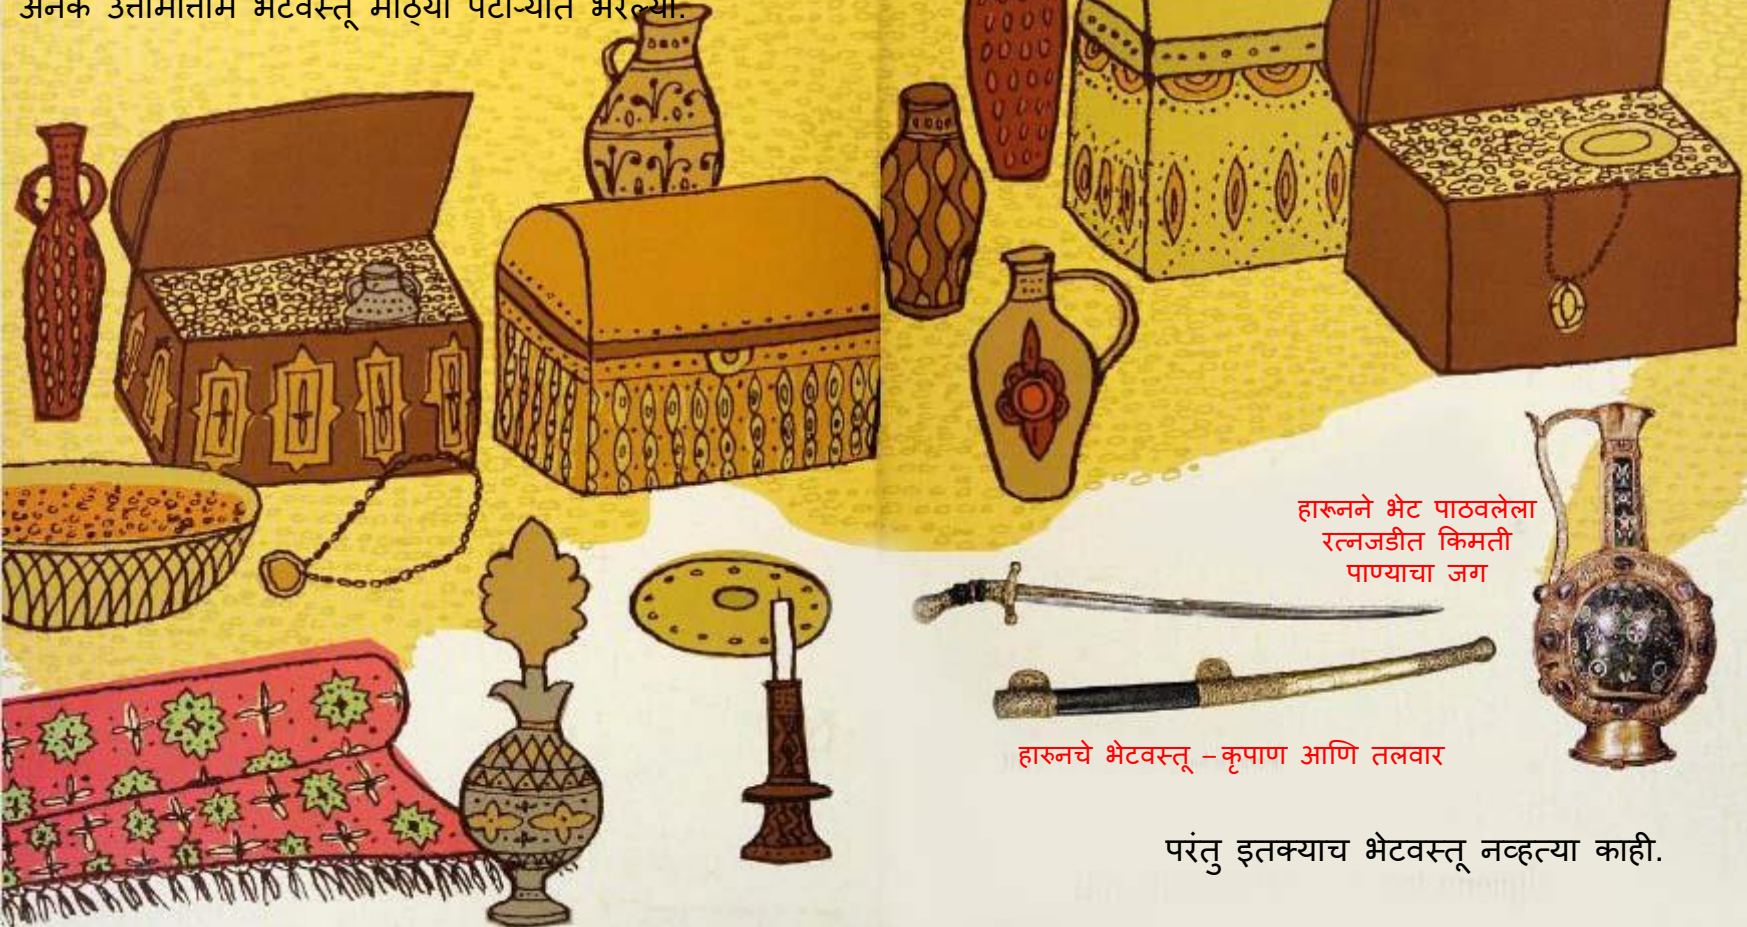 अनेक उत्तामोत्ताम भेटवस्तू मोठ्या पेटाऱ्यात भरल्या.
हारूनने भेट पाठवलेला
रत्नजडीत किमती
पाण्याचा जग
हारुनचे भेटवस्तू – कृपाण आणि तलवार
परंतु इतक्याच भेटवस्तू नव्हत्या काही.